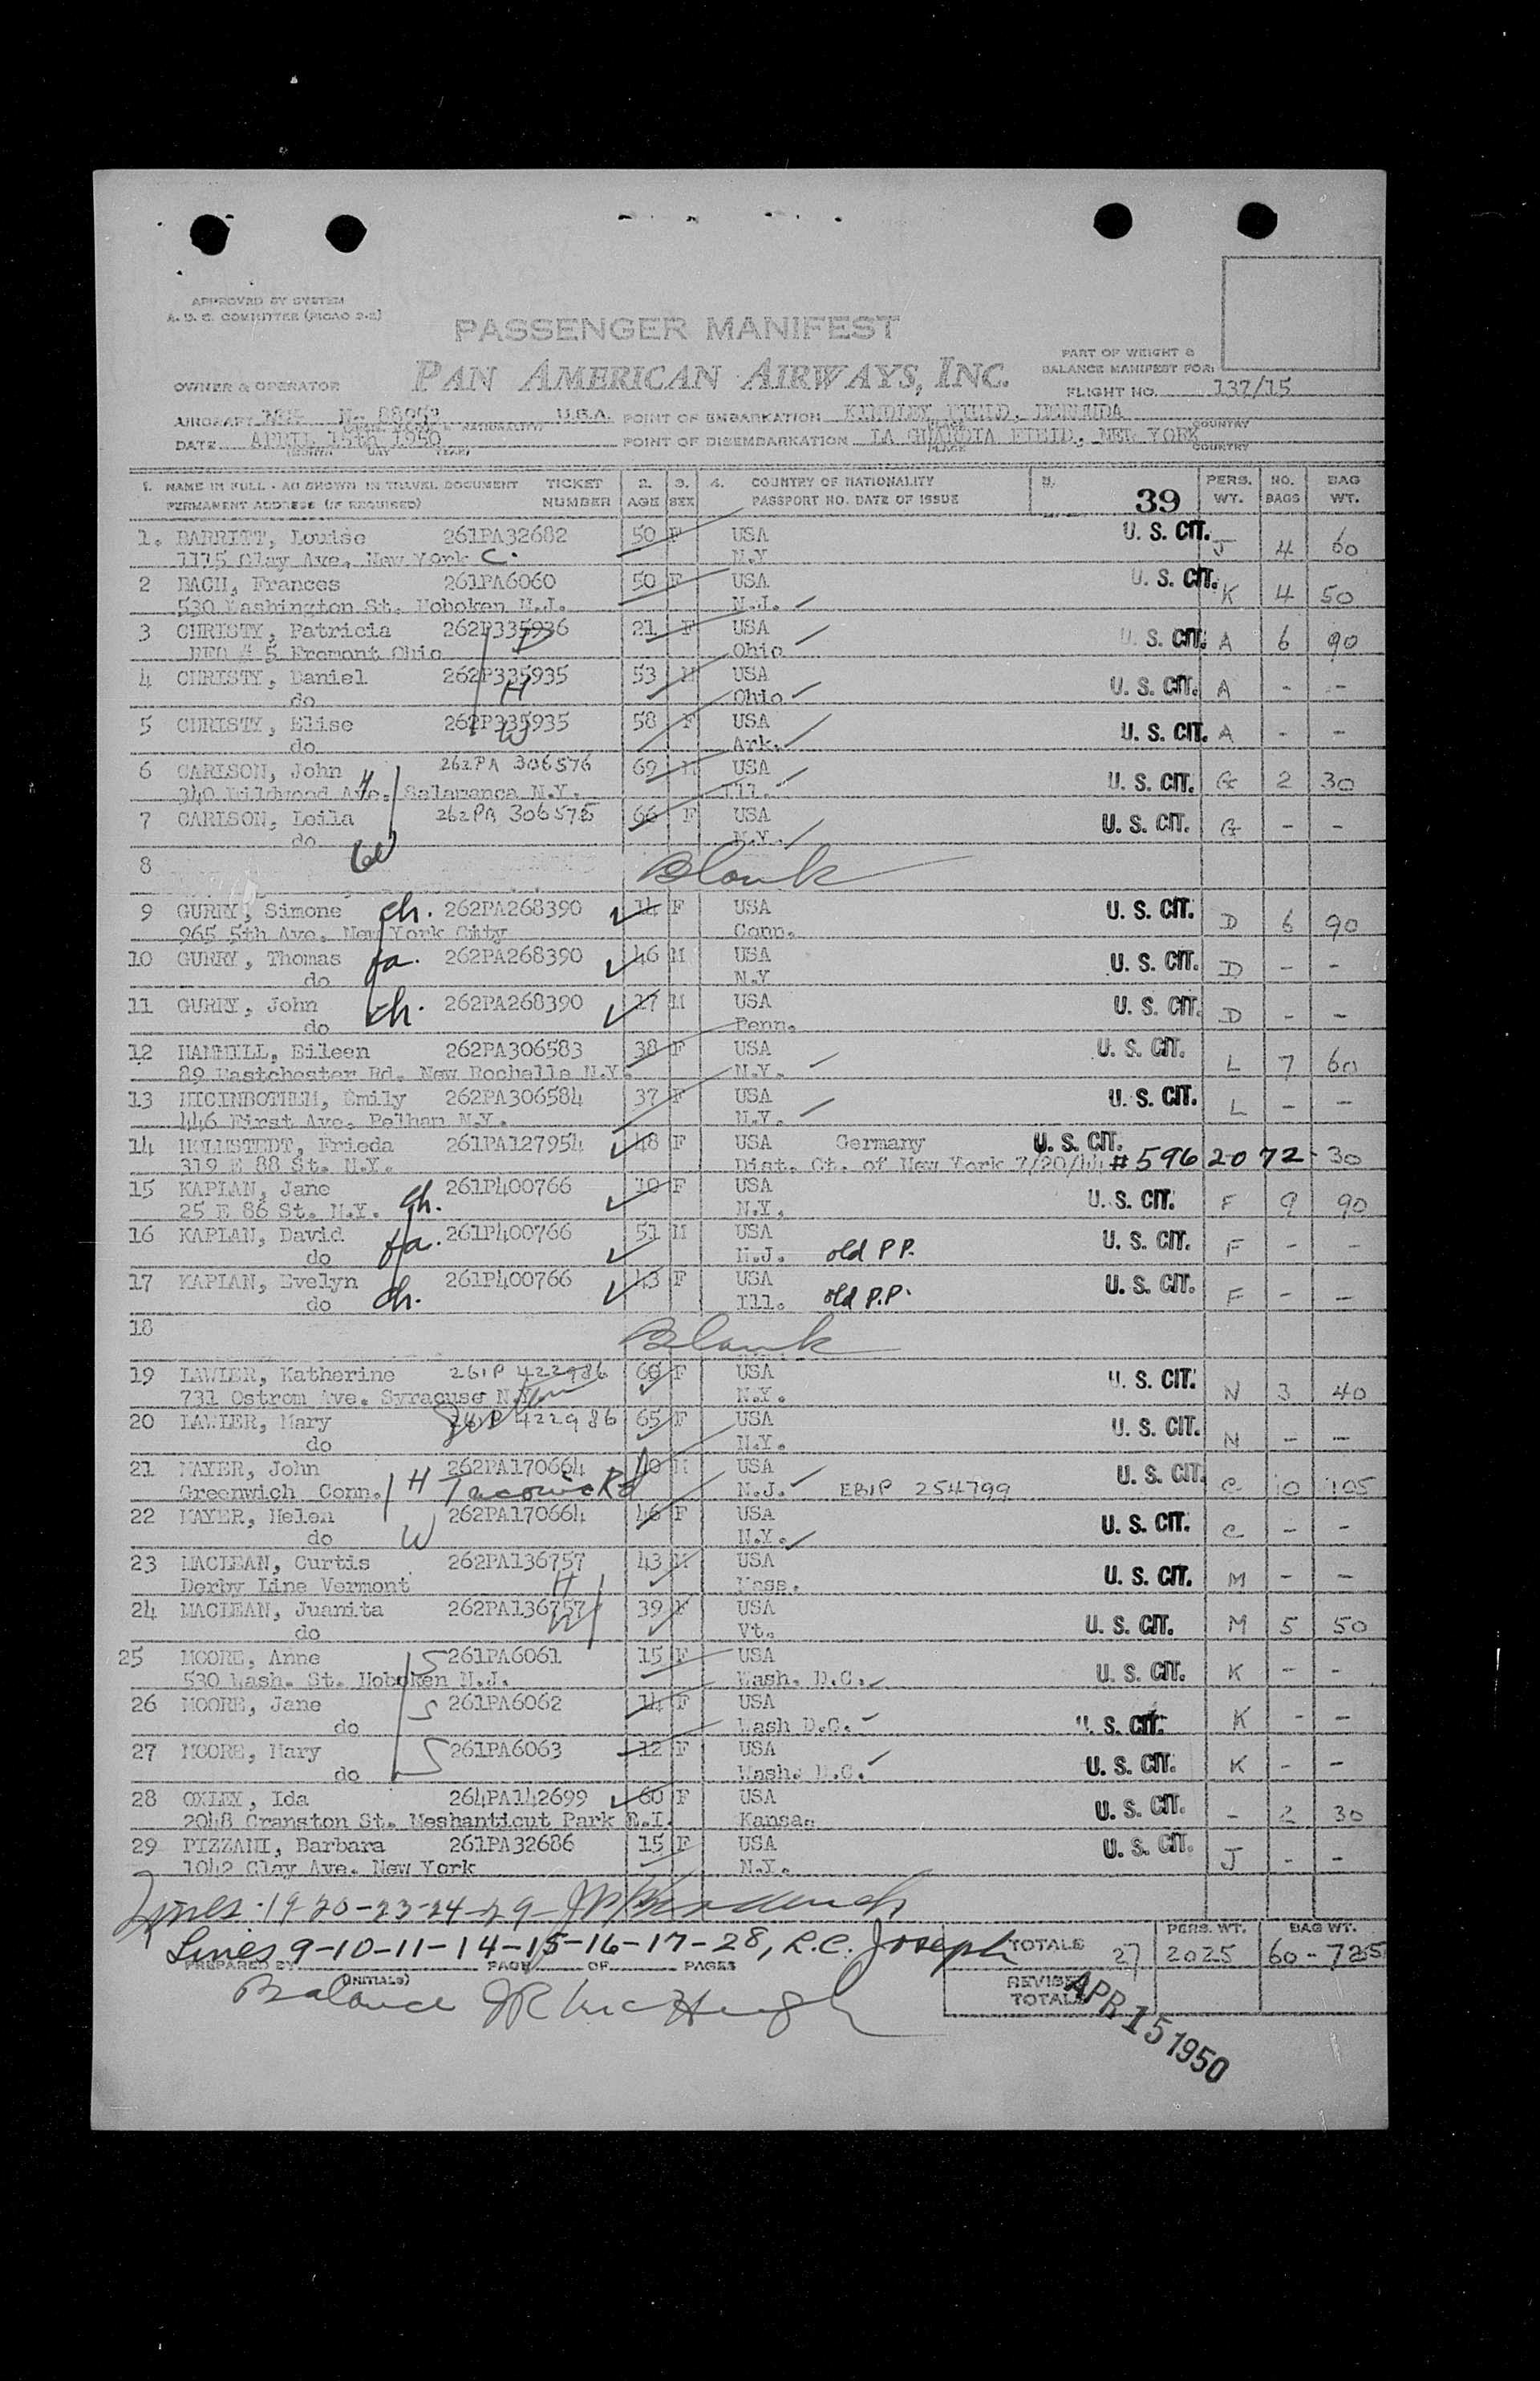 APPROVED BY SYSTEM
A. D. C. COMMITTEE (PICAO 2-2)
PASSENGER MANIFEST
PAN AMERICAN AIRWAYS, INC.
PART OF WEIGHT &
BALANCE MANIFEST FOR:
OWNER & OPERATOR
FLIGHT NO. 137/15
AIRCRAFT U.S.A. POINT OF EMBARKATION KINDLEY FIELD, BERMUDA
PLACE COUNTRY
DATE APRIL 15th 1950 POINT OF DISEMBARKATION LA GUARDIA FIELD, NEW YORK
MONTH DAY YEAR PLACE COUNTRY
1. NAME IN FULL - AS SHOWN IN TRAVEL DOCUMENT TICKET 2. 3. 4. COUNTRY OF NATIONALITY 5. PERS. NO. BAG
PERMANENT ADDRESS (IF REQUIRED) NUMBER AGE SEX PASSPORT NO. DATE OF ISSUE 39 WT. BAGS WT.
1. BARRITT, Louise 261PA32682 50 F USA U. S. CIT. J 4 60
1115 Clay Ave. New York C. N.Y
2 BACH, Frances 261PA6060 50 F USA U. S. CIT. K 4 50
530 Washington St. Hoboken N.J. N.J.
3 CHRISTY, Patricia 262P335936 21 F USA U. S. CIT. A 6 90
RFD # 5 Fremont Ohio D Ohio
4 CHRISTY, Daniel 262P335935 53 M USA U. S. CIT. A - -
do H Ohio
5 CHRISTY, Elise 262P335935 58 F USA U. S. CIT. A - -
do W Ark.
6 CARLSON, John 262PA 306576 69 M USA U. S. CIT. G 2 30
340 Wildwood Ave. Salamanca N.Y. H Ill.
7 CARLSON, Leila 262PA 306575 66 F USA U. S. CIT. G - -
do W N.Y.
8 Blank
9 GURRY, Simone ch. 262PA268390 14 F USA U. S. CIT. D 6 90
965 5th Ave. New York City Conn.
10 GURRY, Thomas fa. 262PA268390 46 M USA U. S. CIT. D - -
do N.Y
11 GURRY, John ch. 262PA268390 17 M USA U. S. CIT. D - -
do Penn.
12 HAMMILL, Eileen 262PA306583 38 F USA U. S. CIT. L 7 60
89 Eastchester Rd. New Rochelle N.Y. N.Y.
13 HIGINBOTHEM, Emily 262PA306584 37 F USA U. S. CIT. L - -
446 First Ave. Pelham N.Y. N.Y.
14 HOLMSTEDT, Frieda 261PA127954 48 F USA Germany U. S. CIT.
319 E 88 St. N.Y. Dist. Ct. of New York 7/20/44 #5962072 30
15 KAPLAN, Jane 261P400766 10 F USA U. S. CIT. F 9 90
25 E 86 St. N.Y. ch. N.Y.
16 KAPLAN, David fa. 261P400766 51 M USA U. S. CIT. F - -
do N.J. old P P.
17 KAPLAN, Evelyn 261P400766 43 F USA U. S. CIT. F - -
do ch. Ill. old P.P.
18 Blank
19 LAWLER, Katherine 261P 422986 60 F USA U. S. CIT. N 3 40
731 Ostrom Ave. Syracuse N.Y. N.Y.
20 LAWLER, Mary 261P 422986 65 F USA U. S. CIT. N - -
do N.Y.
21 MAYER, John 262PA170664 M USA U. S. CIT. C 10 105
Greenwich Conn. H Taconic Rd N.J. EBIP 254799
22 MAYER, Helen 262PA170664 46 F USA U. S. CIT. C - -
do W N.Y.
23 MACLEAN, Curtis 262PA136757 43 M USA U. S. CIT. M - -
Derby Line Vermont H Mass.
24 MACLEAN, Juanita 262PA136757 39 F USA U. S. CIT. M 5 50
do W Vt.
25 MOORE, Anne S 261PA6061 15 F USA U. S. CIT. K - -
530 Wash. St. Hoboken N.J. Wash. D.C.
26 MOORE, Jane S 261PA6062 14 F USA U. S. CIT. K - -
do Wash D.C.
27 MOORE, Mary S 261PA6063 12 F USA U. S. CIT. K - -
do Wash. D.C.
28 OXLEY, Ida 264PA142699 60 F USA U. S. CIT. - 2 30
2048 Cranston St. Meshanticut Park R.I. Kansas
29 PIZZANI, Barbara 261PA32686 15 F USA U. S. CIT. J - -
1042 Clay Ave. New York N.Y.
Lines 19-20-23-24-29-
Lines 9-10-11-14-15-16-17-28, R.C. Joseph
PERS. WT. BAG WT.
TOTALS 27 2025 60 - 725
PREPARED BY PAGE OF PAGES
(INITIALS)
REVISED
TOTALS
Balance JR McHugh
APR 15 1950